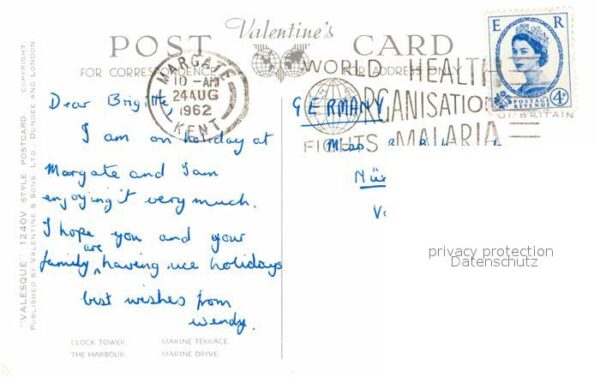 POST Valentine's CARD
FOR CORRESPONDENCE FOR ADDRESS ONLY
E R
POSTAGE REVENUE 4D
MARGATE
10 - AM
24 AUG
1962
KENT
WORLD HEALTH
ORGANISATION
FIGHTS MALARIA
Dear Brigitte,
I am on holiday at
Margate and I am
enjoying it very much.
I hope you and your
family are having nice holidays
best wishes from
Wendy.
GERMANY
Miss
privacy protection
Datenschutz
"VALESQUE" 1240V STYLE POSTCARD COPYRIGHT
PUBLISHED BY VALENTINE & SONS, LTD. DUNDEE AND LONDON
CLOCK TOWER. MARINE TERRACE.
THE HARBOUR. MARINE DRIVE.